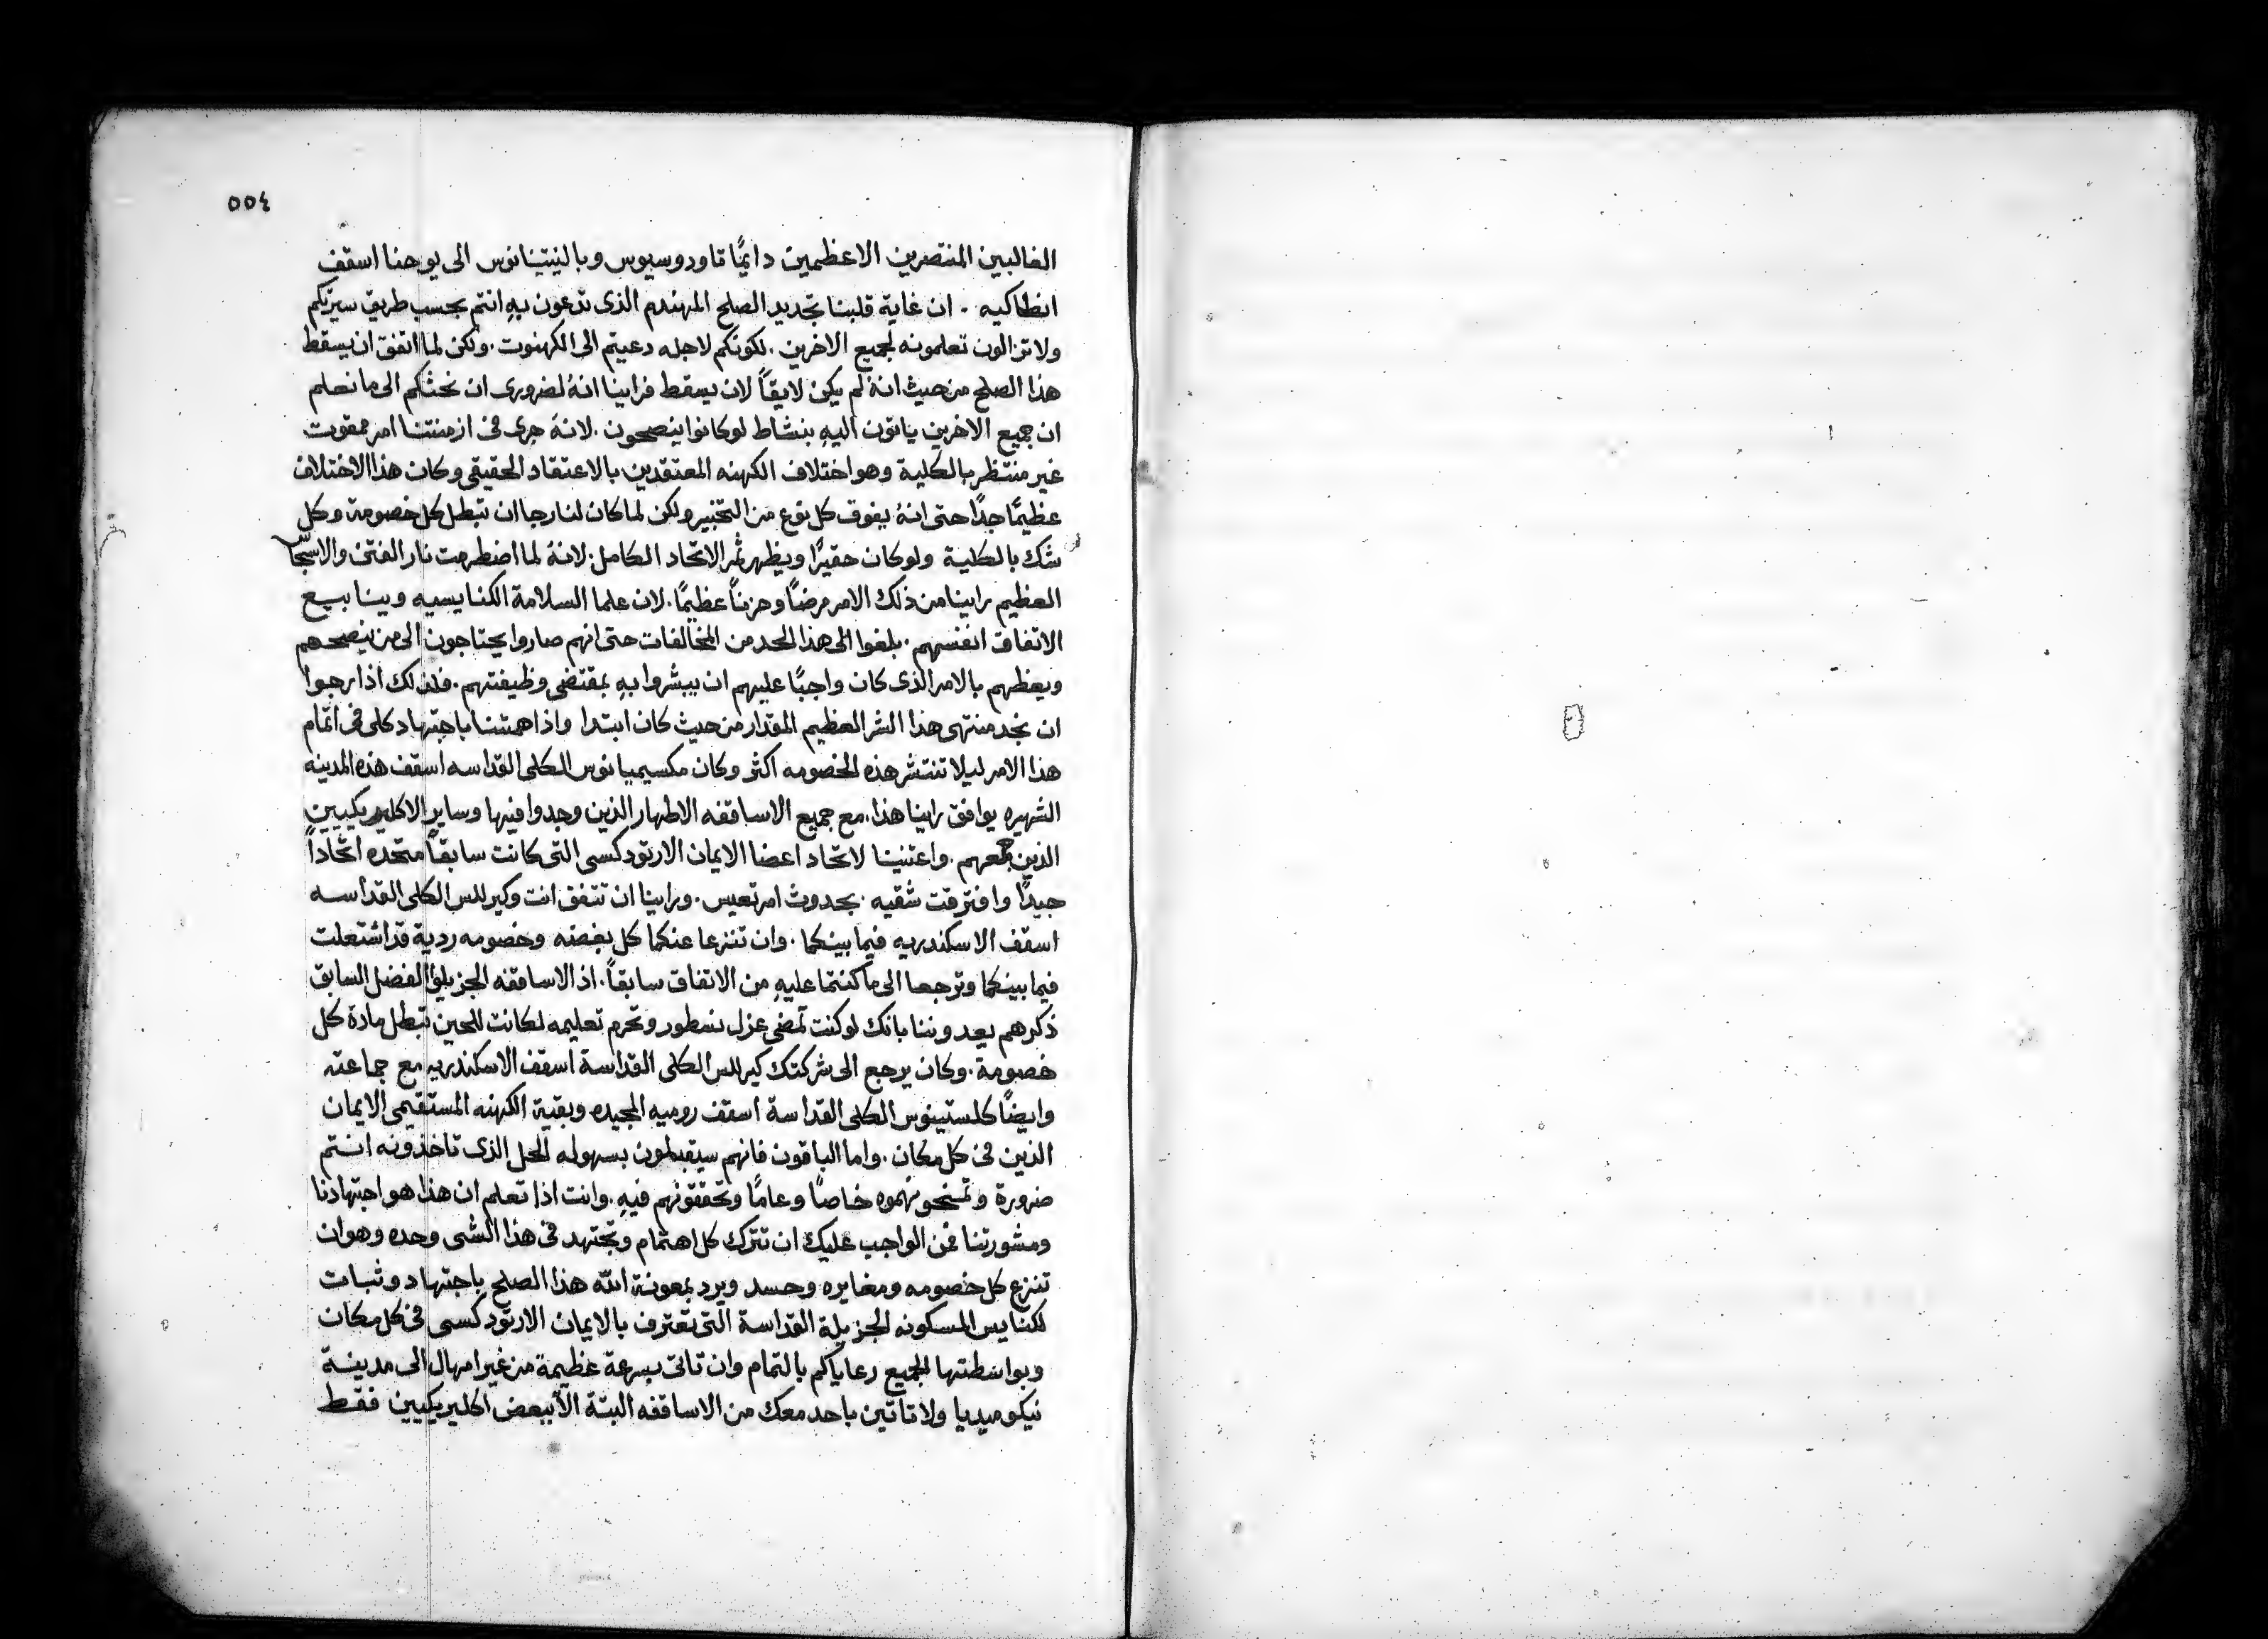 ٥٥٤
الغالبين المنتصرين الاعظمين دايمًا تاودوسيوس وبالنيتينانوس الى يوحنا اسقف
انطاكيه . ان غاية قلبنا تجديد الصلح المهندم الذى تدعون بهِ انتم بحسب طريق سيرتكم
ولا تزالون تعلمونه لجميع الاخرين . لكونكم لاجله دعيتم الى الكهنوت . ولكن لما اتفق ان يسقط
هذا الصلح من حيث انهُ لم يكن لايقاً لان يسقط فراينا انهُ لضرورى ان نحثكم الى ما نعلم
ان جميع الاخرين ياتون اليهِ بنشاط لو كانوا ينصحون . لانهُ جرى فى ازمنتنا امر ممقوت
غير منتظر بالكلية وهو اختلاف الكهنه المعتقدين بالاعتقاد الحقيقى وكان هذا الاختلاف
عظيمًا جدًا حتى انهُ يفوق كل نوع من التخبير ولكن لما كان لنا رجا ان تبطل كل خصومة وكل
شك بالكلية ولو كان حقيرًا ويظهر ثمر الاتحاد الكامل . لانهُ لما اضطرمت نار الفتن والاسجّا
العظيم راينا من ذلك الامر مرضًا وحزنًا عظيمًا . لان علما السلامة الكنايسيه وينابيع
الاتفاق انفسهم . بلغوا الى هذا الحد من المخالفات حتى انهم صاروا يحتاجون الى من ينصحهم
ويعظهم بالامر الذى كان واجبًا عليهم ان يبشروا بهِ بمقتضى وظيفتهم . فلذلك اذا رجوا
ان نجد منتهى هذا الشر العظيم المقدار من حيث كان ابتدا واذا همتنا باجتهاد كلى فى اتمام
هذا الامر ليلا تنتشر هذه الخصومه اكثر وكان مكسيميانوس الكلى القداسه اسقف هذه المدينه
الشهيره يوافق راينا هذا . مع جميع الاساقفه الاطهار الذين وجدوا فيها وساير الاكليريكيين
الذين معهم . واعتنينا لاتحاد اعضا الايمان الارتودكسى التى كانت سابقاً متحده اتحاداً
جيدًا وافترقت شقيه . بحدوث امر تعيس . وراينا ان تتفق انت وكيرللس الكلى القداسه
اسقف الاسكندريه فيما بينكما . وان تنزعا عنكما كل بغضه وخصومه ردية قد اشتعلت
فيما بينكما وترجعا الى ما كنتما عليهِ من الاتفاق سابقاً . اذ الاساقفه الجزيلوا الفضل السابق
ذكرهم يعدوننا بانك لو كنت تمضى عزل نسطور وتحرم تعليمه لكانت للحين تبطل مادة كل
خصومة . وكان يرجع الى شركتك كيرللس الكلى القداسة اسقف الاسكندريه مع جماعته
وايضًا كلستينوس الكلى القداسة اسقف روميه المجيده وبقية الكهنه المستقيمى الايمان
الذين فى كل مكان . واما الباقون فانهم سيقبلون بسهوله الحل الذى تاخذونه انتم
ضرورة وتمنحونهموه خاصًا وعامًا وتحققونهم فيهِ . وانت اذا تعلم ان هذا هو اجتهادنا
ومشورتنا فمن الواجب عليك ان تترك كل اهتمام وتجتهد فى هذا الشى وحده وهو ان
تنزع كل خصومه ومغايره وحسد ويرد بمعونة الله هذا الصلح باجتهاد وثبات
لكنايس المسكونه الجزيلة القداسة التى تعترف بالايمان الارتودكسى فى كل مكان
وبواسطتها لجميع رعاياكم بالتمام وان تاتى بسرعة عظيمة من غير امهال الى مدينة
نيكوميديا ولا تاتين باحد معك من الاساقفه البتة الا ببعض اكليريكيين فقط